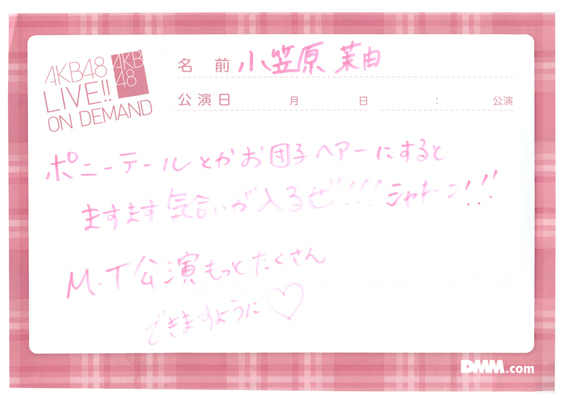 AKB48
LIVE!!
ON DEMAND
AKB
48
名 前 小笠原 茉由
公演日 月 日 : 公演
ポニーテールとかお団子ヘアーにすると
ますます気合いが入るぜ!!! シャキーン!!!
M.T公演もっとたくさん
できますように♡
DMM.com